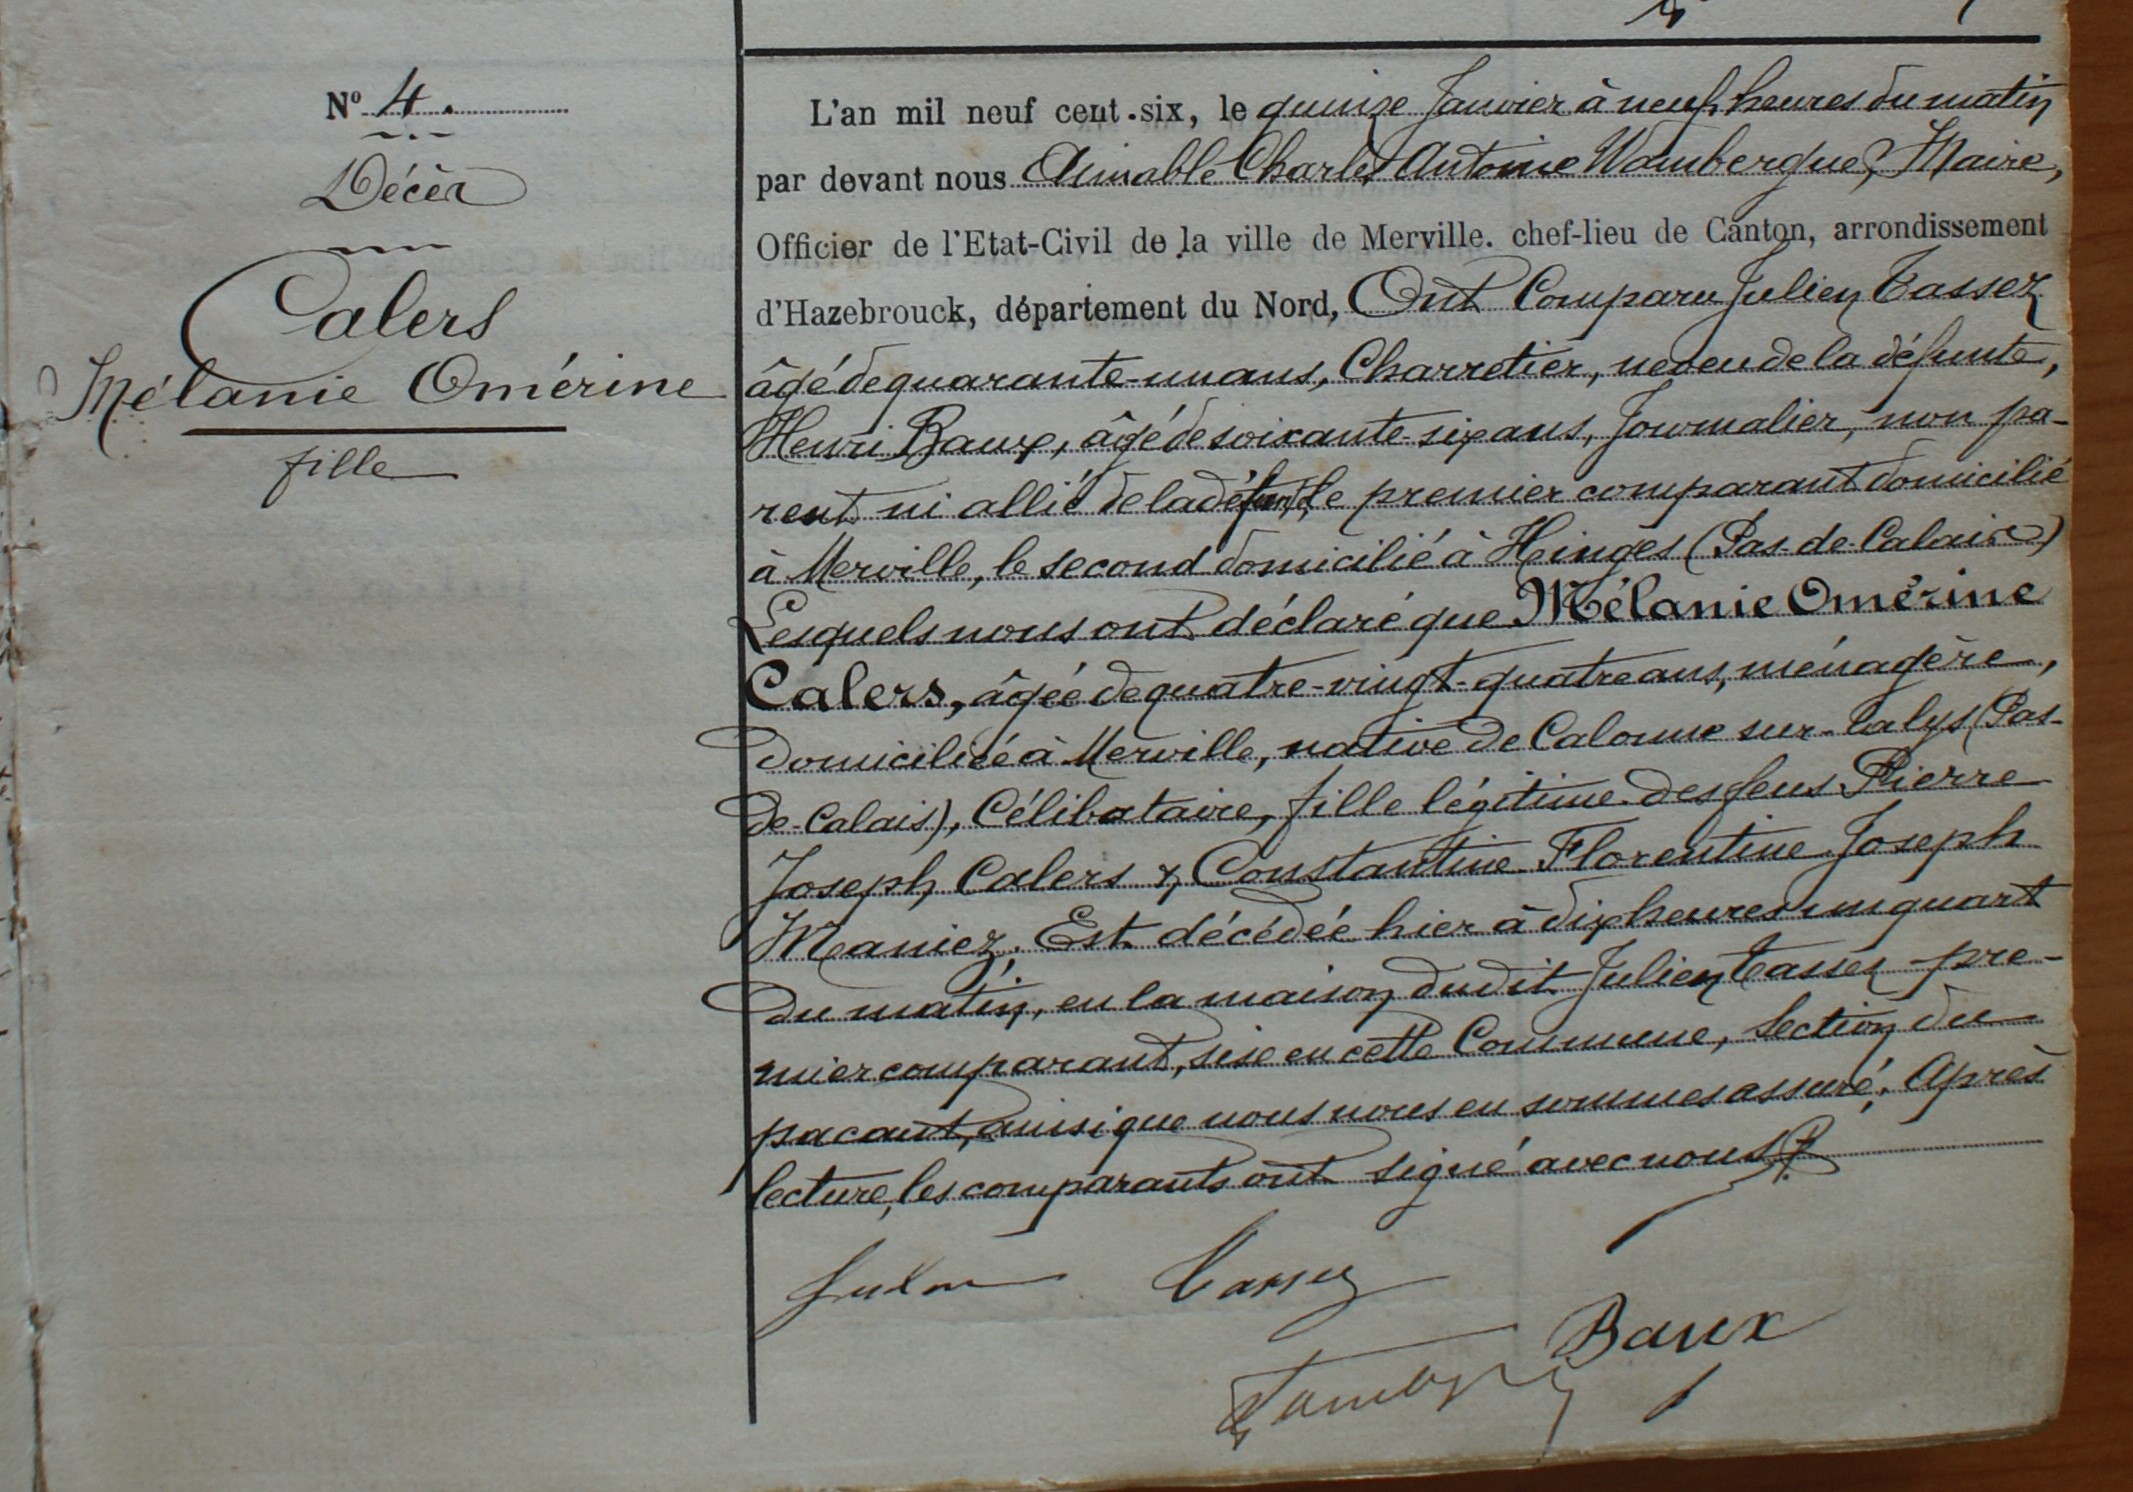 Nº 4.
Décès
Calers
Mélanie Omérine
fille
L'an mil neuf cent six, le quinze Janvier à neuf heures du matin
par devant nous Aimable Charles Antoine Wambergue, Maire,
Officier de l'Etat-Civil de la ville de Merville. chef-lieu de Canton, arrondissement
d'Hazebrouck, département du Nord, Ont Comparu Julien Tassez
âgé de quarante-un ans, Charretier, neveu de la défunte,
Henri Baux, âgé de soixante-six ans, Journalier, non pa-
rent ni allié de la défunte, le premier comparant domicilié
à Merville, le second domicilié à Hinges (Pas-de-Calais)
Lesquels nous ont déclaré que Mélanie Omérine
Calers, âgée de quatre-vingt-quatre ans, ménagère,
domiciliée à Merville, native de Calonne sur-la lys (Pas-
de-Calais), Célibataire, fille légitime des feus Pierre
Joseph Calers & Constantine Florentine Joseph
Maniez; Est décédée hier à dix heures un quart
du matin, en la maison dudit Julien Tassez pre-
mier comparant, sise en cette Commune, Section du
pacaut, ainsi que nous nous en sommes assuré; Après
lecture, les comparants ont signé avec nous
Julien Tassez
Baux